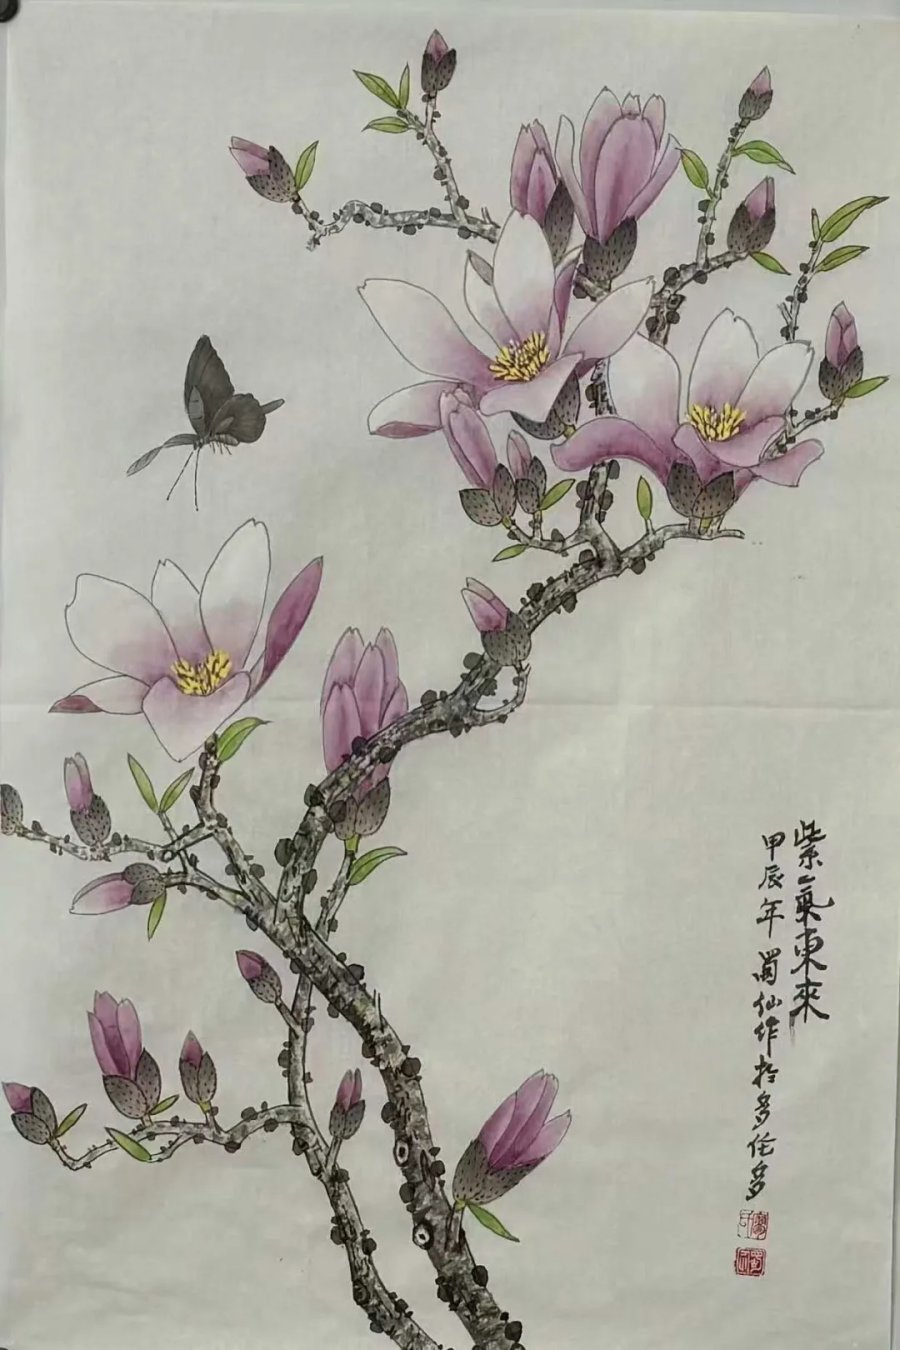 紫氣東來
甲辰年蜀仙作於多伦多